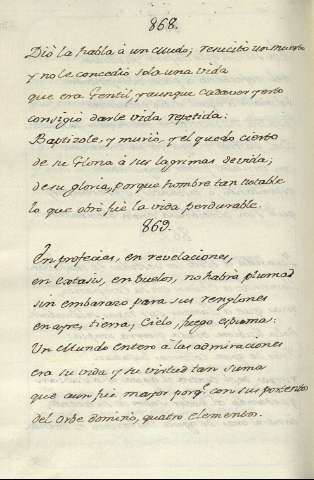 868.
Dió la habla à un mudo; resucitò un muerto
y no le concediò sola una vida
que era Gentil, y aunque cadaver yerto
consigiò darle vida repetida:
Baptizole, y muriò, y el quedo cierto
de su Gloria â sus lagrimas devida;
de su gloria, porque hombre tan notable
lo que obrò fuè la vida perdurable.
869.
En profecias, en revelaciones,
en Extasis, en buelos, no habrá plumas
sin embarazo para sus renglones
en ayre, tierra, Cielo, fuego espumas:
Un Mundo entero â las admiraciones
era su vida y su virtud tan suma
que aun fuè mayor porq.e con su portento
del Orbe dominò, quatro elementos.